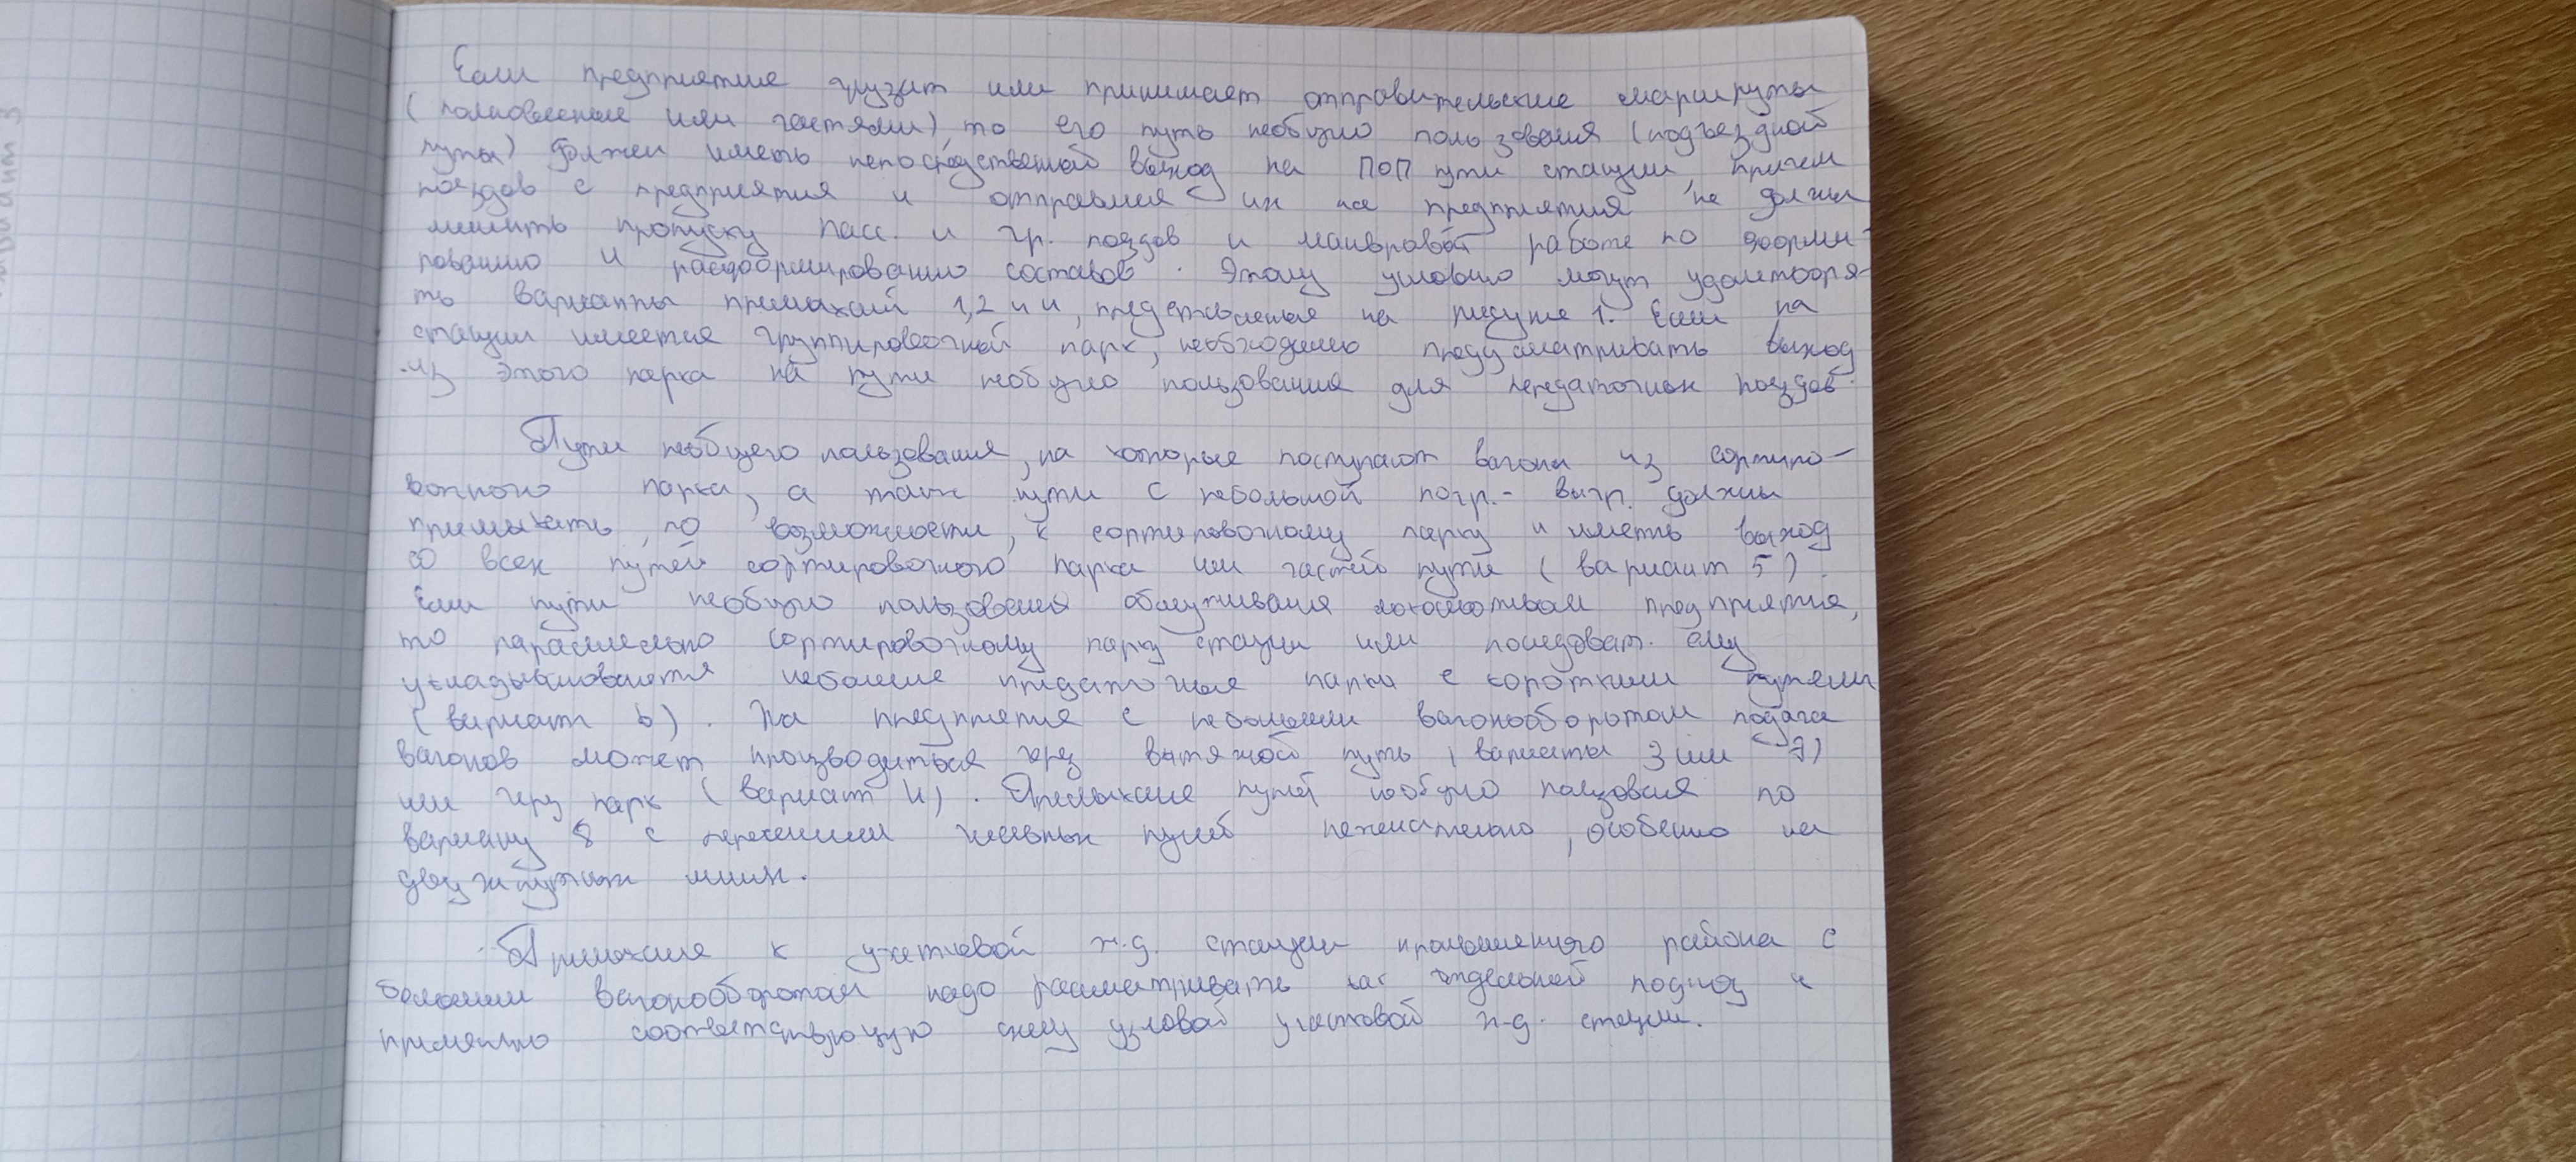 Если предприятие грузит или принимает отправительские маршруты
(полновесные или частями), то его путь необщго пользования (подъездной
путь) должен иметь непосредственный выход на ПОП пути станции, причем
поездов с предприятия и отправление их на предприятия не должны
мешать пропуску пасс. и гр. поездов и маневровой работе по форми-
рованию и расформированию составов. Этому условию могут удовлетворя-
ть варианты примыканий 1,2 и 4, представленные на рисунке 1. Если на
станции имеется группировочный парк, необходимо предусматривать выход
из этого парка на пути необщго пользования для передаточных поездов.
Пути необщего пользования, на которые поступают вагоны из сортиро-
вочного парка, а также пути с небольшой погр.- выгр. должны
примыкать, по возможности, к сортировочному парку и иметь выход
со всех путей сортировочного парка или частей пути (вариант 5).
Если пути необщго пользования обслуживания локомотивом предприятия,
то параллельно сортировочному парку станции или последоват. ему
небольшие придаточные парки с короткими путями
(вариант 6). На предприятия с небольшим вагонооборотом подача
вагонов может производиться чрез вытяжной путь (варианты 3 или 7)
или чрз парк (вариант 4). Примыкание путей необщго пользования по
варианту 8 с пересечением главных путей нежелательно, особенно на
двухпутных линиях.
Примыкание к участковой ж.д. станции промышленного района с
большим вагонооборотом надо рассматривать как отдельный подход и
соответствующую схему узловой участковой ж-д. станции.